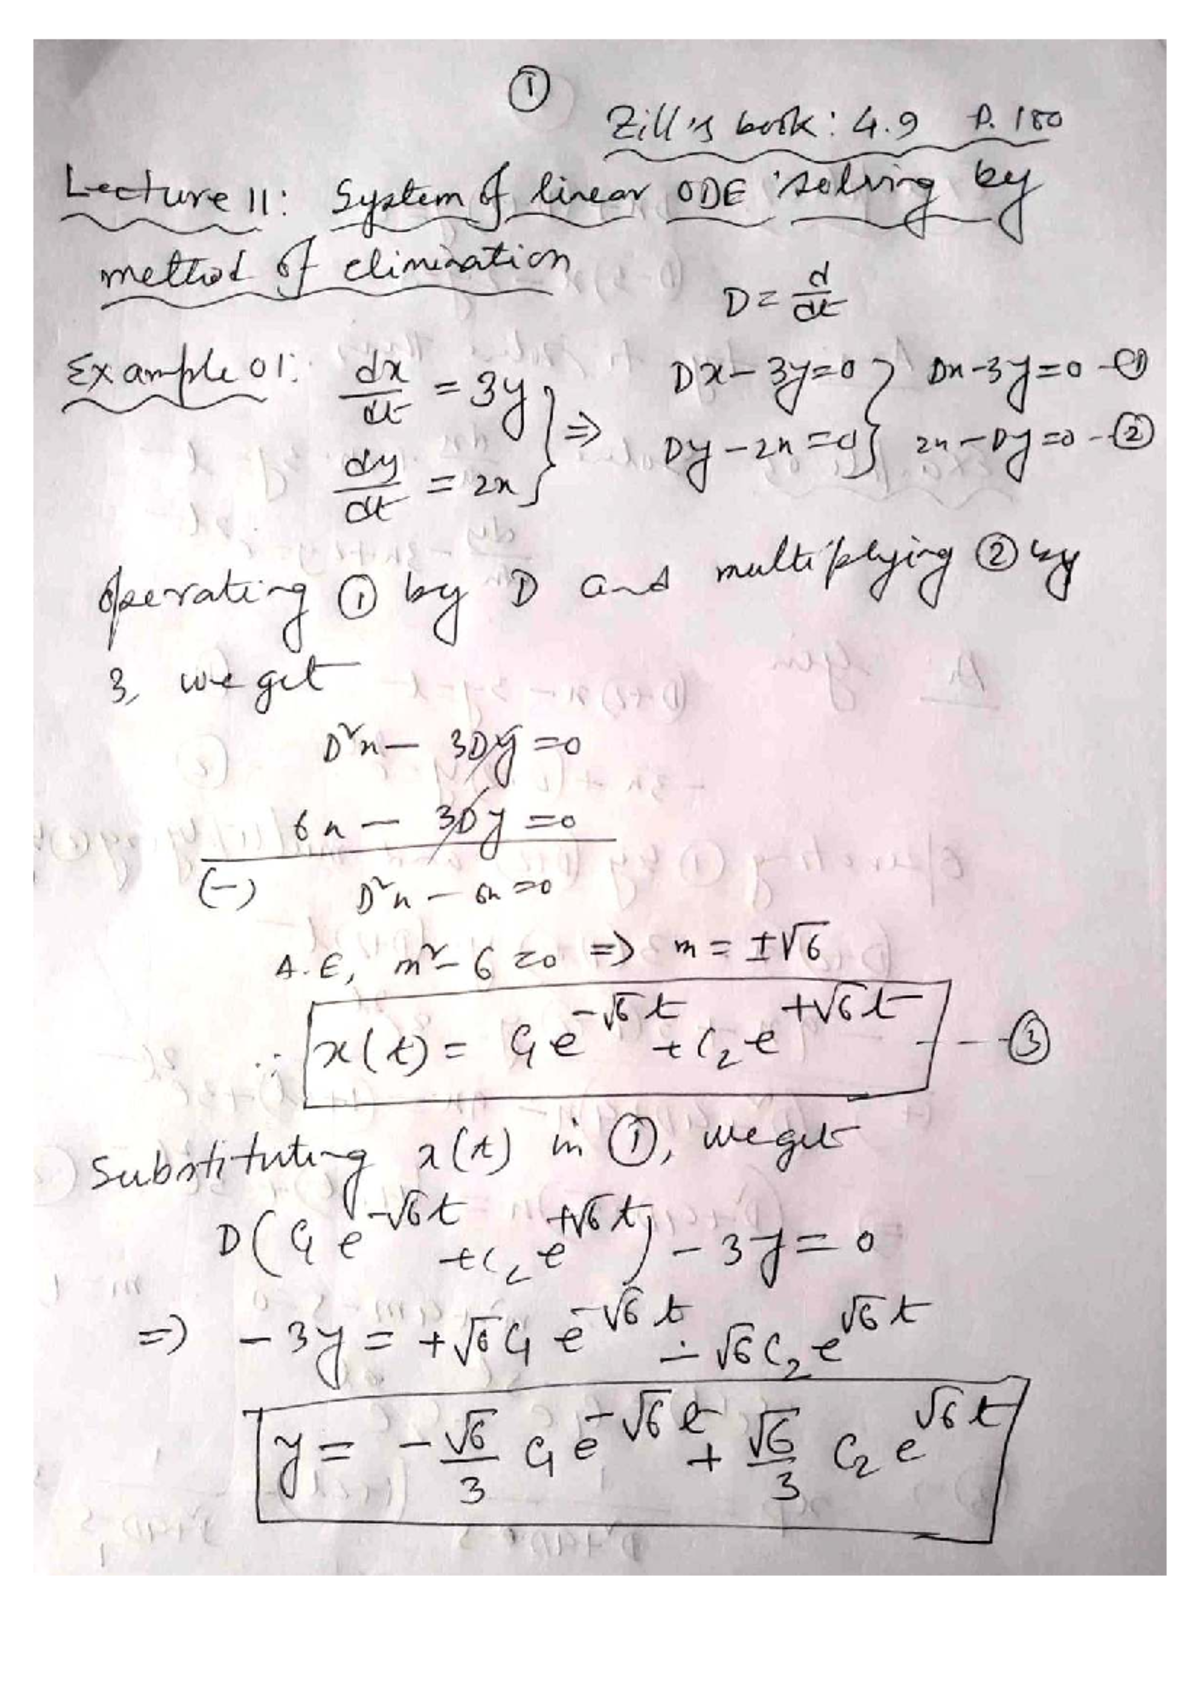 ①
Zill's book: 4.9 P. 180
Lecture 11: System of linear ODE solving by
method of elimination
D = d/dt
Example 01: dx/dt = 3y } ⇒ Dx - 3y = 0 } Dx - 3y = 0 - ①
dy/dt = 2x } Dy - 2x = 0 } 2x - Dy = 0 -- ②
operating ① by D and multiplying ② by
3, we get
D²x - 3Dy = 0
6x - 3Dy = 0
(-) D²x - 6x = 0
A.E, m² - 6 = 0 ⇒ m = ±√6
∴ x(t) = C₁e^{-√6t} + C₂e^{+√6t} --- ③
Substituting x(t) in ①, we get
D(C₁e^{-√6t} + C₂e^{+√6t}) - 3y = 0
⇒ -3y = +√6C₁e^{-√6t} - √6C₂e^{√6t}
y = -√6/3 C₁e^{-√6t} + √6/3 C₂e^{√6t}